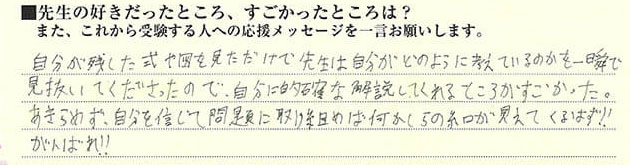 ■先生の好きだったところ、すごかったところは？
また、これから受験する人への応援メッセージを一言お願いします。
自分が残した式や図を見ただけで先生は自分がどのように考えているのかを一瞬で
見抜いてくださったので、自分に的確な解説してくれるところがすごかった。
あきらめず、自分を信じて問題に取り組めば何かしらの糸口が見えてくるはず!!
がんばれ!!